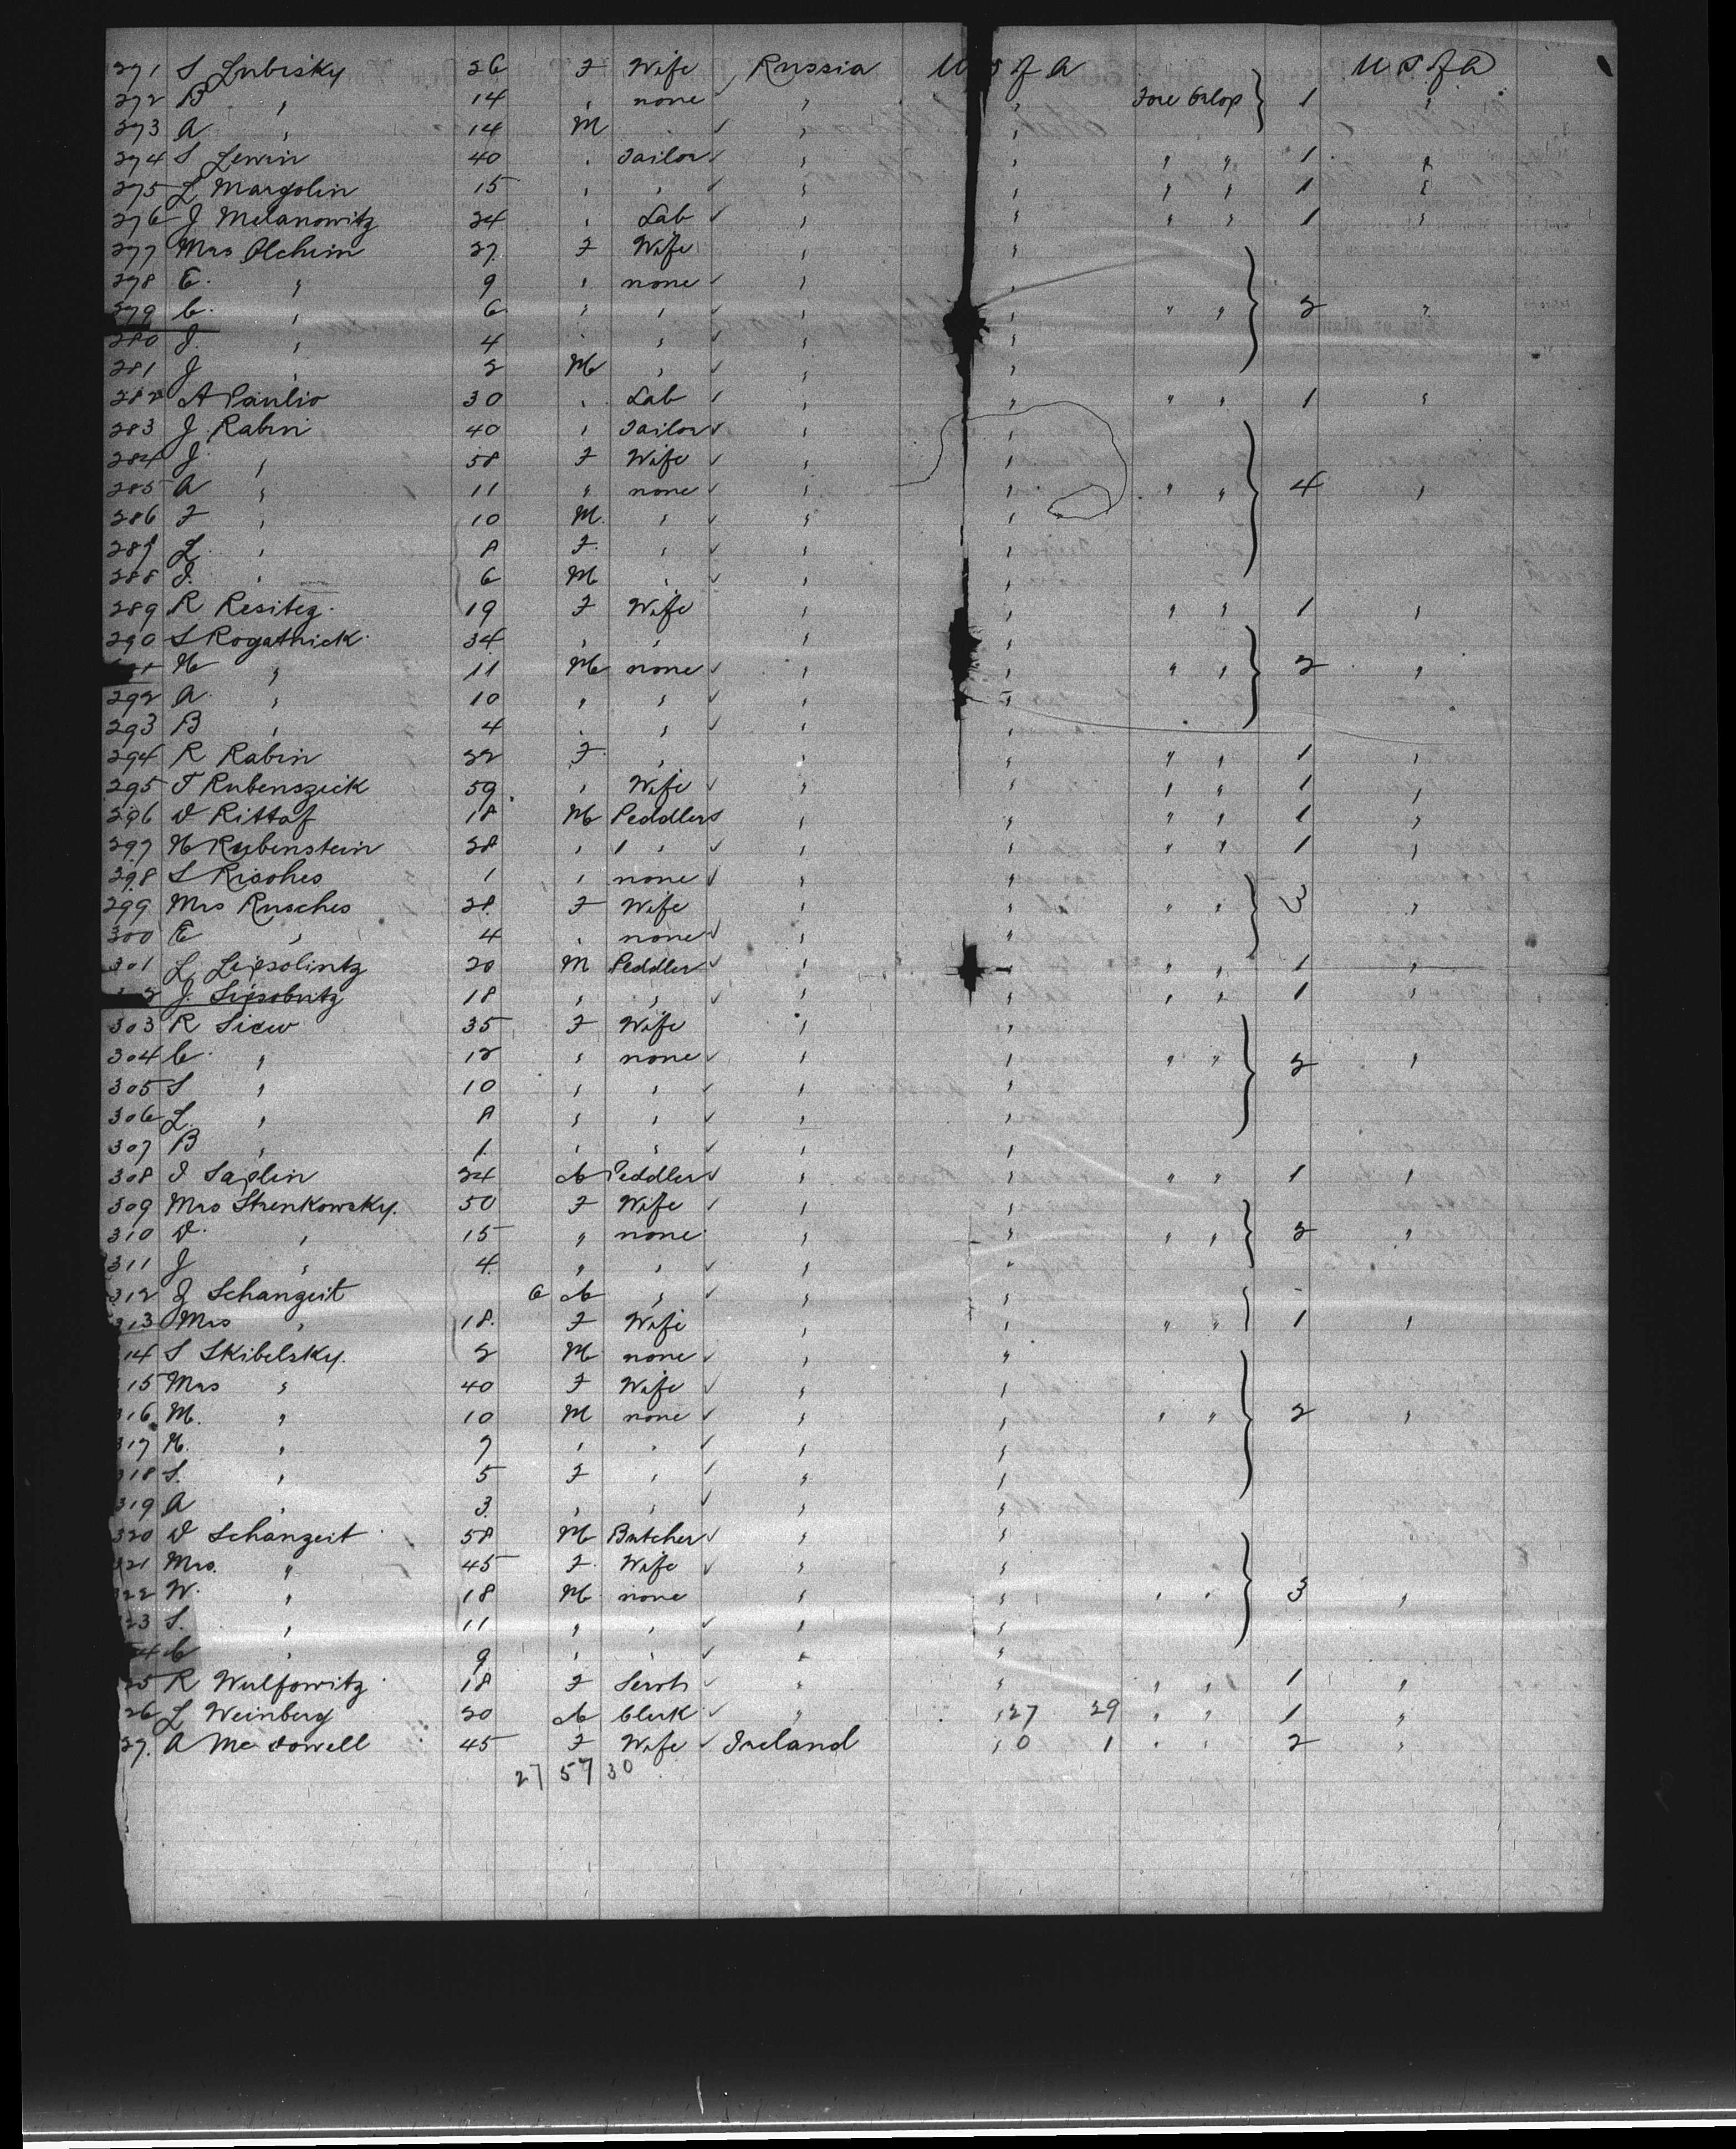 271 S Lubisky 26 F Wife Russia U S of A U S of A
272 B " 14 " none " " Fore Orlop } 1 "
273 A " 14 M " " "
274 S Lewin 40 " Tailor " " " " 1 "
275 L Margolin 15 " " " " " " 1 "
276 J Melanowitz 24 " Lab " " " " 1 "
277 Mrs Olchim 27 F Wife " "
278 E. " 9 " none " "
279 C. " 6 " " " " " " } 2 "
280 J. " 4 " " " "
281 J " 2 M " " "
282 A Paulio 30 " Lab " " " " 1 "
283 J Rabin 40 " Tailor " "
284 J " 58 F Wife " "
285 A " 11 " none " " " " } 4 "
286 F " 10 M. " " "
287 L " 8 F. " " "
288 I. " 6 M " " "
289 R Resitez 19 F Wife " " " " 1 "
290 S Rogatnick 34 " " " "
H " 11 M none " " " " } 2 "
292 A " 10 " " " "
293 B " 4 " " " "
294 R Rabin 22 F. " " " " " 1 "
295 T Rubenszick 59 " Wife " " " " 1 "
296 D Rittaf 18 M Peddlers " " " " 1 "
297 H Rubenstein 28 " " " " " " 1 "
298 S Risches 1 " none " "
299 Mrs Rusches 28 F Wife " " " " } 3 "
300 E " 4 " none " "
301 L Lipsolintz 20 M Peddler " " " " 1 "
2 J. 18 " " " " " " 1 "
303 R Sicw 35 F Wife " "
304 C. " 12 " none " " " " } 2 "
305 S " 10 " " " "
306 L. " 8 " " " "
307 B " 1 " " " "
308 I Saplin 24 M Peddler " " " " 1 "
309 Mrs Strenkowsky. 50 F Wife " "
310 D. " 15 " none " " " " } 2 "
311 J " 4 " " " "
312 J Schangeit 6 M " " "
313 Mrs " 18. F Wife " " " " } 1 "
14 S Skibelsky. 2 M none " "
15 Mrs " 40 F Wife " "
316 M. " 10 M none " " " " } 2 "
317 H. " 7 " " " "
318 S. " 5 F " " "
319 A " 3 " " " "
320 D Schangeit 58 M Butcher " "
321 Mrs. " 45 F. Wife " "
322 W. " 18 M none " " " " } 3 "
23 S. " 11 " " " "
24 C " 9 " " " "
25 R Wulfowitz 18 F Servt " " " " 1 "
26 L Weinberg 20 M Clerk " " 27 29 " " 1 "
27. A McDowell 45 F Wife Ireland " 0 1 " " 2 "
27 57 30